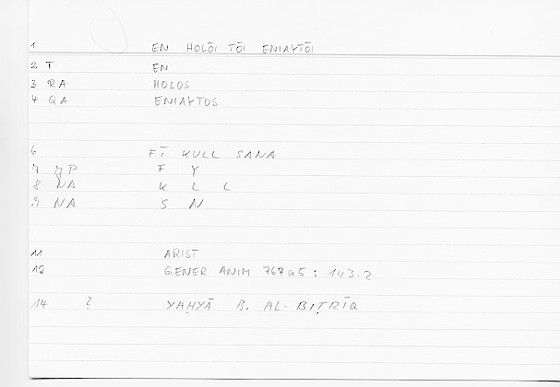 1 EN HOLŌI TŌI ENIAYTŌI
2 T EN
3 RA HOLOS
4 QA ENIAYTOS
6 FĪ KULL SANA
7 MP F Y
8 NA K L L
9 NA S N
11 ARIST
12 GENER ANIM 767a5 : 143.2
14 ? YAḤYĀ B. AL-BIṬRĪQ